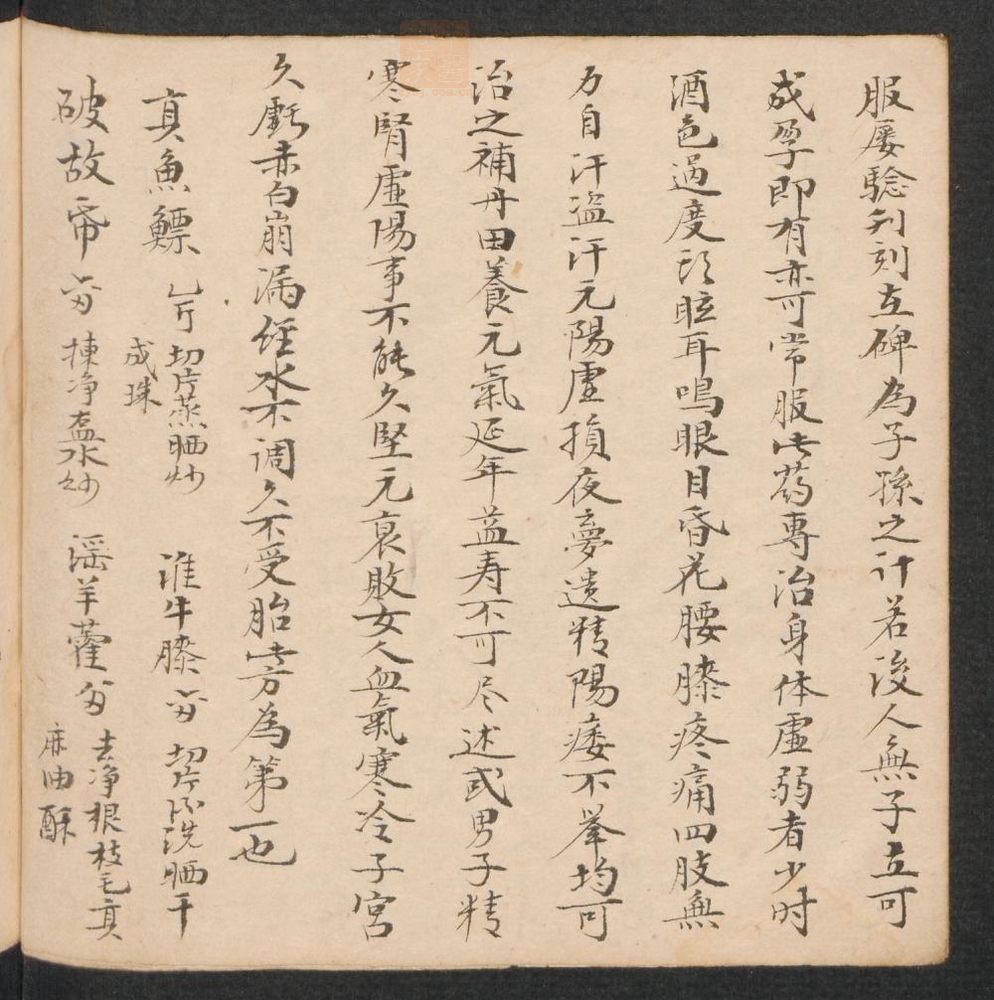 服屡騐刋刻立碑為子孫之计若後人無子立可
成孕即有亦可常服此药專治身体虚弱者少时
酒色過度頭眩耳鳴眼目昏花腰膝疼痛四肢無
力自汗盗汗元陽虚損夜夢遗精陽痿不举均可
治之補丹田養元氣延年益寿不可尽述或男子精
寒腎虚陽事不能久堅元衰敗女人血氣寒冷子宮
久虧赤白崩漏经水不调久不受胎此方為第一也
真魚鰾 乙斤 切片蒸晒炒成珠 淮牛膝 切片酒洗晒干
破故帋 揀净盐水炒 淫羊藿 去净根枝毛真麻油酥